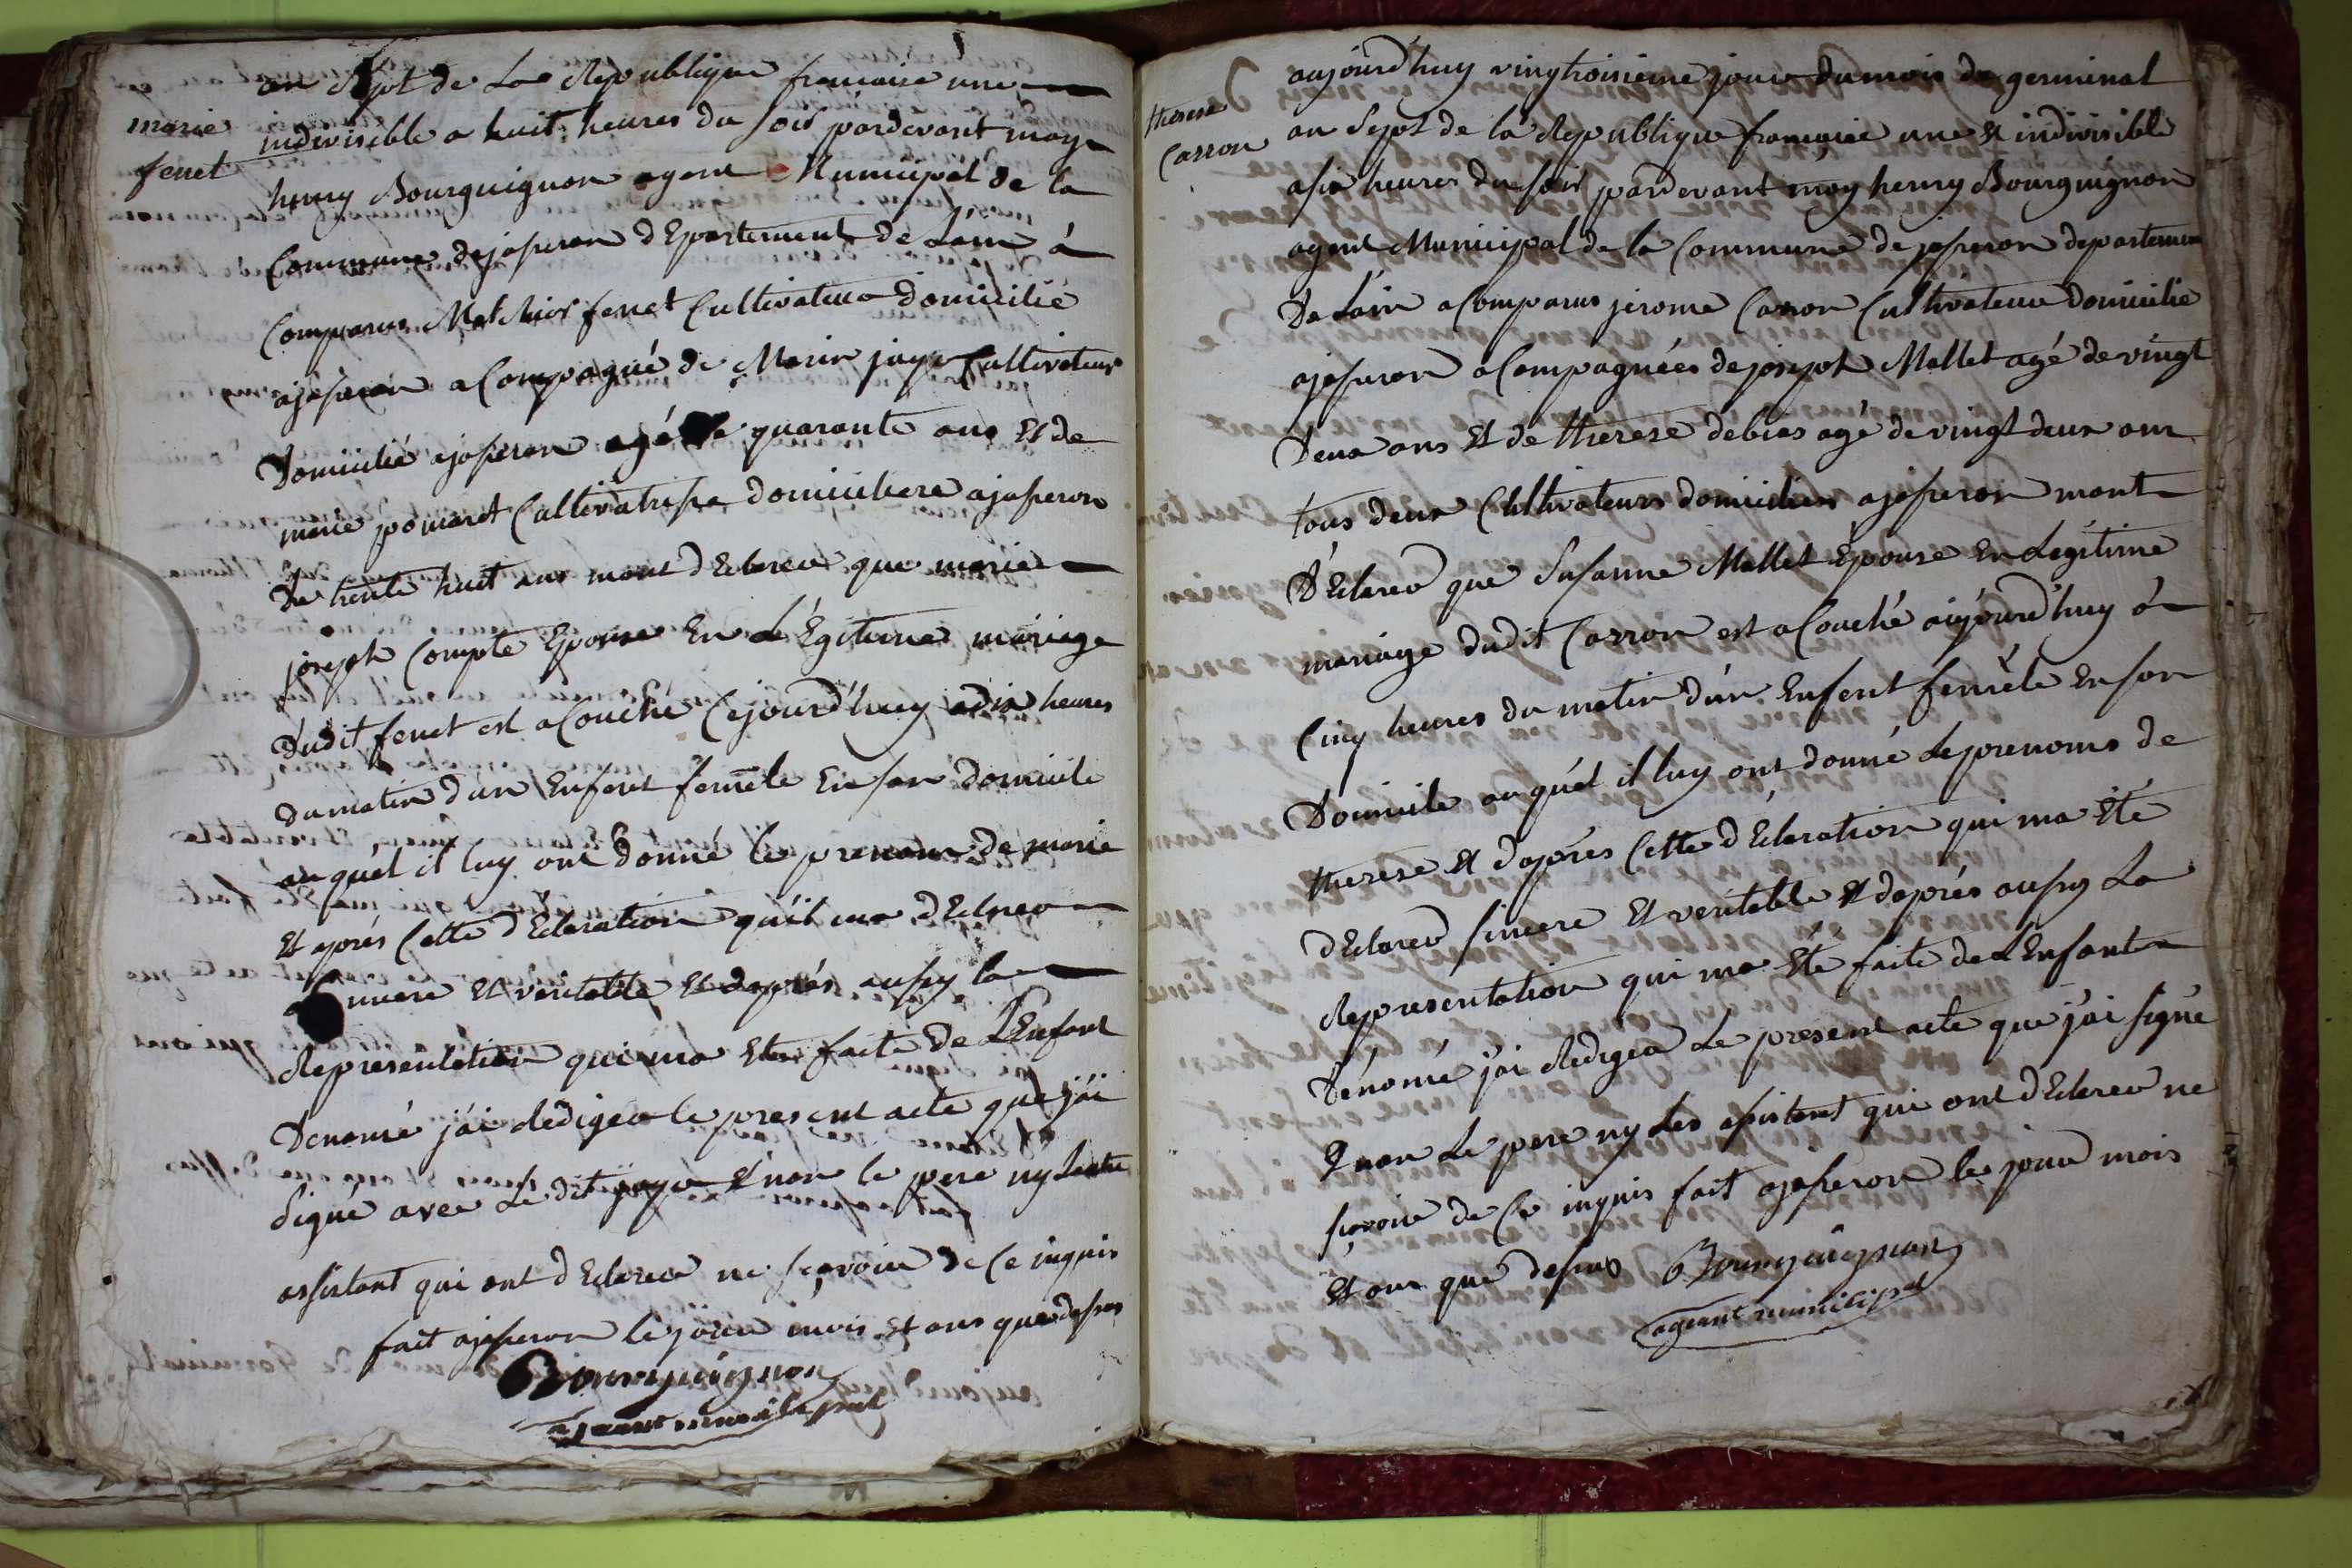 an Sept de La Republique francaise une
marie
fenet
indivisible a huit heures du soir pardevant moy
henry Bourguignon agent Municipal de la
Commune dejasseron dEpartement de Lain à
Comparus Melchior fenet Cultivateur domicilié
ajasseron aCompagné de Marin jaye Cultivateur
Domicilié ajasseron agé de quarante ans Et de
marie pomaret Cultivatrisse domiciliere ajasseron
De trente huit ans mont dEclareer que marie
joseph Compte Epouse En LEgitime mariage
dudit fenet est aCouché Cejourd'huy adix heures
du matin dun Enfent femelle En son domicile
au quél il luy ont donné le prenom de marie
Et aprés Cette dEclaration quil ma dEclareer
Sincere Et veritable Et daprés aussy la
Representation qui ma Etee faite de LEnfant
Denomé j'ai Redigee le present acte que j'ai
Signé avec Le dit jaye Et non le pere ny Lautre
assistant qui ont dEclareer ne sçavoir de Ce inquis
fait ajasseron le jour mois Et ans que dessus
Bourguignon
ageant municipal
therese
Carron
aujourd'huy vingtroisieme jour dumois de germinal
an Sept de la Republique francaise une Et indivisible
asix heures du soir pardevant moy henry Bourguignon
agent Municipal de la Commune de jasseron departement
De Lain aComparus jerome Carron Cultivateur domicilie
ajasseron aCompagnées dejoseph Mallet agé de vingt
Deux ans Et de therese debias agé de vingt deux ans
tous deux Cultivateurs domiciliers ajasseron mont
DEclareer que Susanne Mallet Epouse En Legitime
mariage dudit Carron est aCouché aujourd'huy à
Cinq heures du matin d'un Enfent femele En son
Domicile au quél il luy ont donné Leprenoms de
therese Et daprés Cette dEclaration qui ma Eté
dEclareer sincere Et veritable Et daprés aussy La
Representation qui ma Eté faite de LEnfant
Dénomé j'ai Redigee Le present acte que j'ai signé
Et non Le pere ny Les assistant qui ont dEclareer ne
sçavoir de Ce inquis fait ajasseron les jour mois
Et ans que dessus Bourguignon
ageant municipal